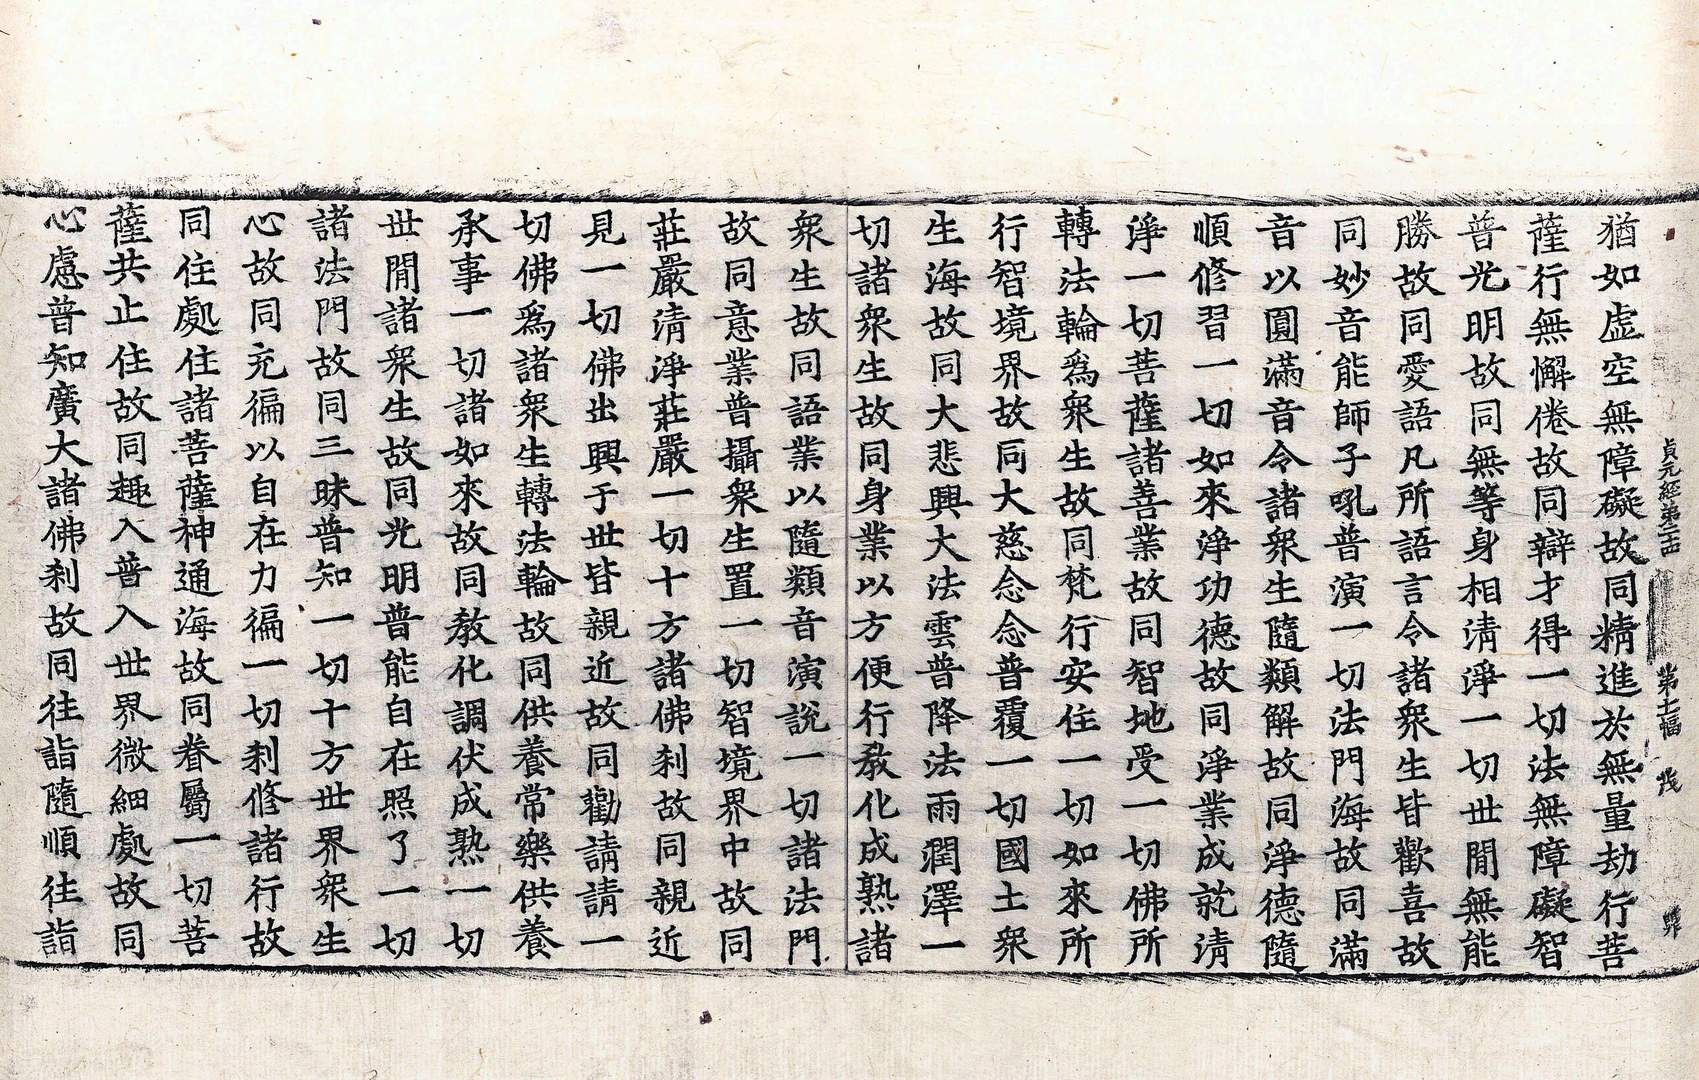 貞元經第二十四 第十一幅 茂
猶如虛空無障礙故同精進於無量劫行菩
薩行無懈倦故同辯才得一切法無障礙智
普光明故同無等身相清淨一切世閒無能
勝故同愛語凡所語言令諸衆生皆歡喜故
同妙音能師子吼普演一切法門海故同滿
音以圓滿音令諸衆生隨類解故同淨德隨
順修習一切如來淨功德故同淨業成就清
淨一切菩薩諸善業故同智地受一切佛所
轉法輪爲衆生故同梵行安住一切如來所
行智境界故同大慈念念普覆一切國土衆
生海故同大悲興大法雲普降法雨潤澤一
切諸衆生故同身業以方便行教化成熟諸
衆生故同語業以隨類音演說一切諸法門
故同意業普攝衆生置一切智境界中故同
莊嚴清淨莊嚴一切十方諸佛刹故同親近
見一切佛出興于世皆親近故同勸請請一
切佛爲諸衆生轉法輪故同供養常樂供養
承事一切諸如來故同教化調伏成熟一切
世閒諸衆生故同光明普能自在照了一切
諸法門故同三昧普知一切十方世界衆生
心故同充徧以自在力徧一切刹修諸行故
同住處住諸菩薩神通海故同眷屬一切菩
薩共止住故同趣入普入世界微細處故同
心慮普知廣大諸佛刹故同往詣隨順往詣